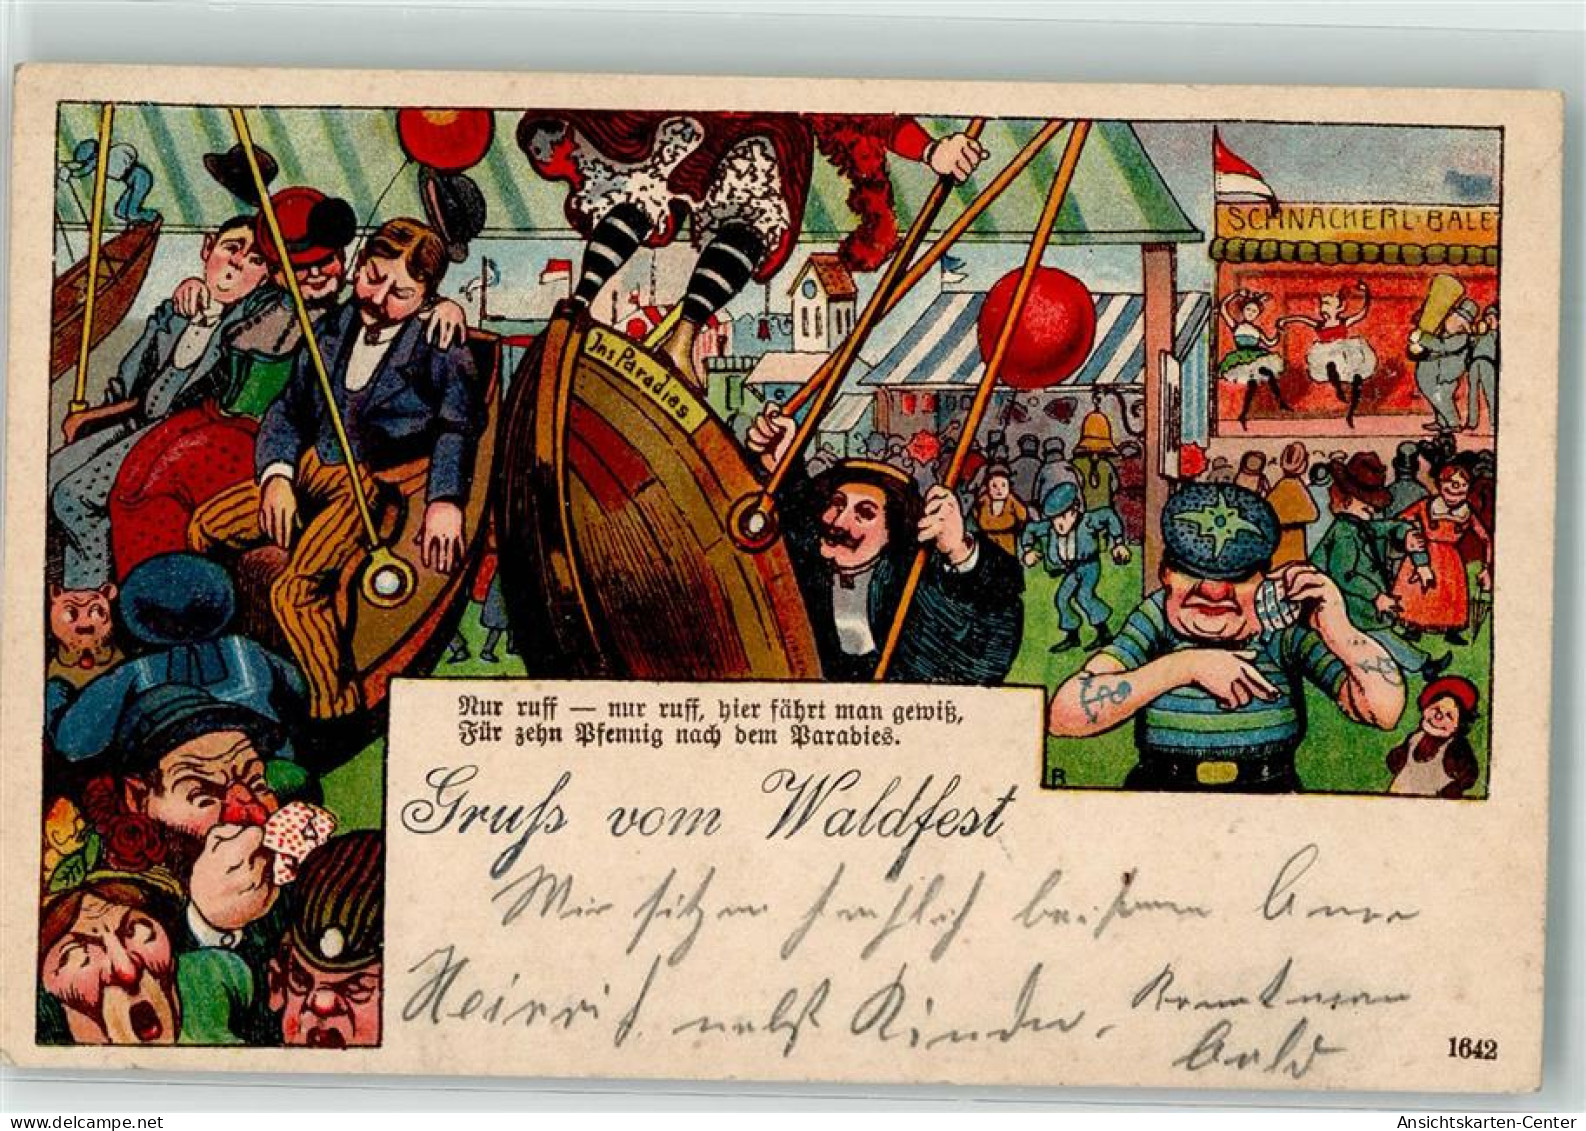 SCHNACKERL-BALE
Ins Paradies
Nur ruff — nur ruff, hier fährt man gewiß,
Für zehn Pfennig nach dem Paradies.
Gruß vom Waldfest
Wir sitzen fröhlich beisammen
Heinrich nebst Kinder.
R
1642
Ansichtskarten-Center